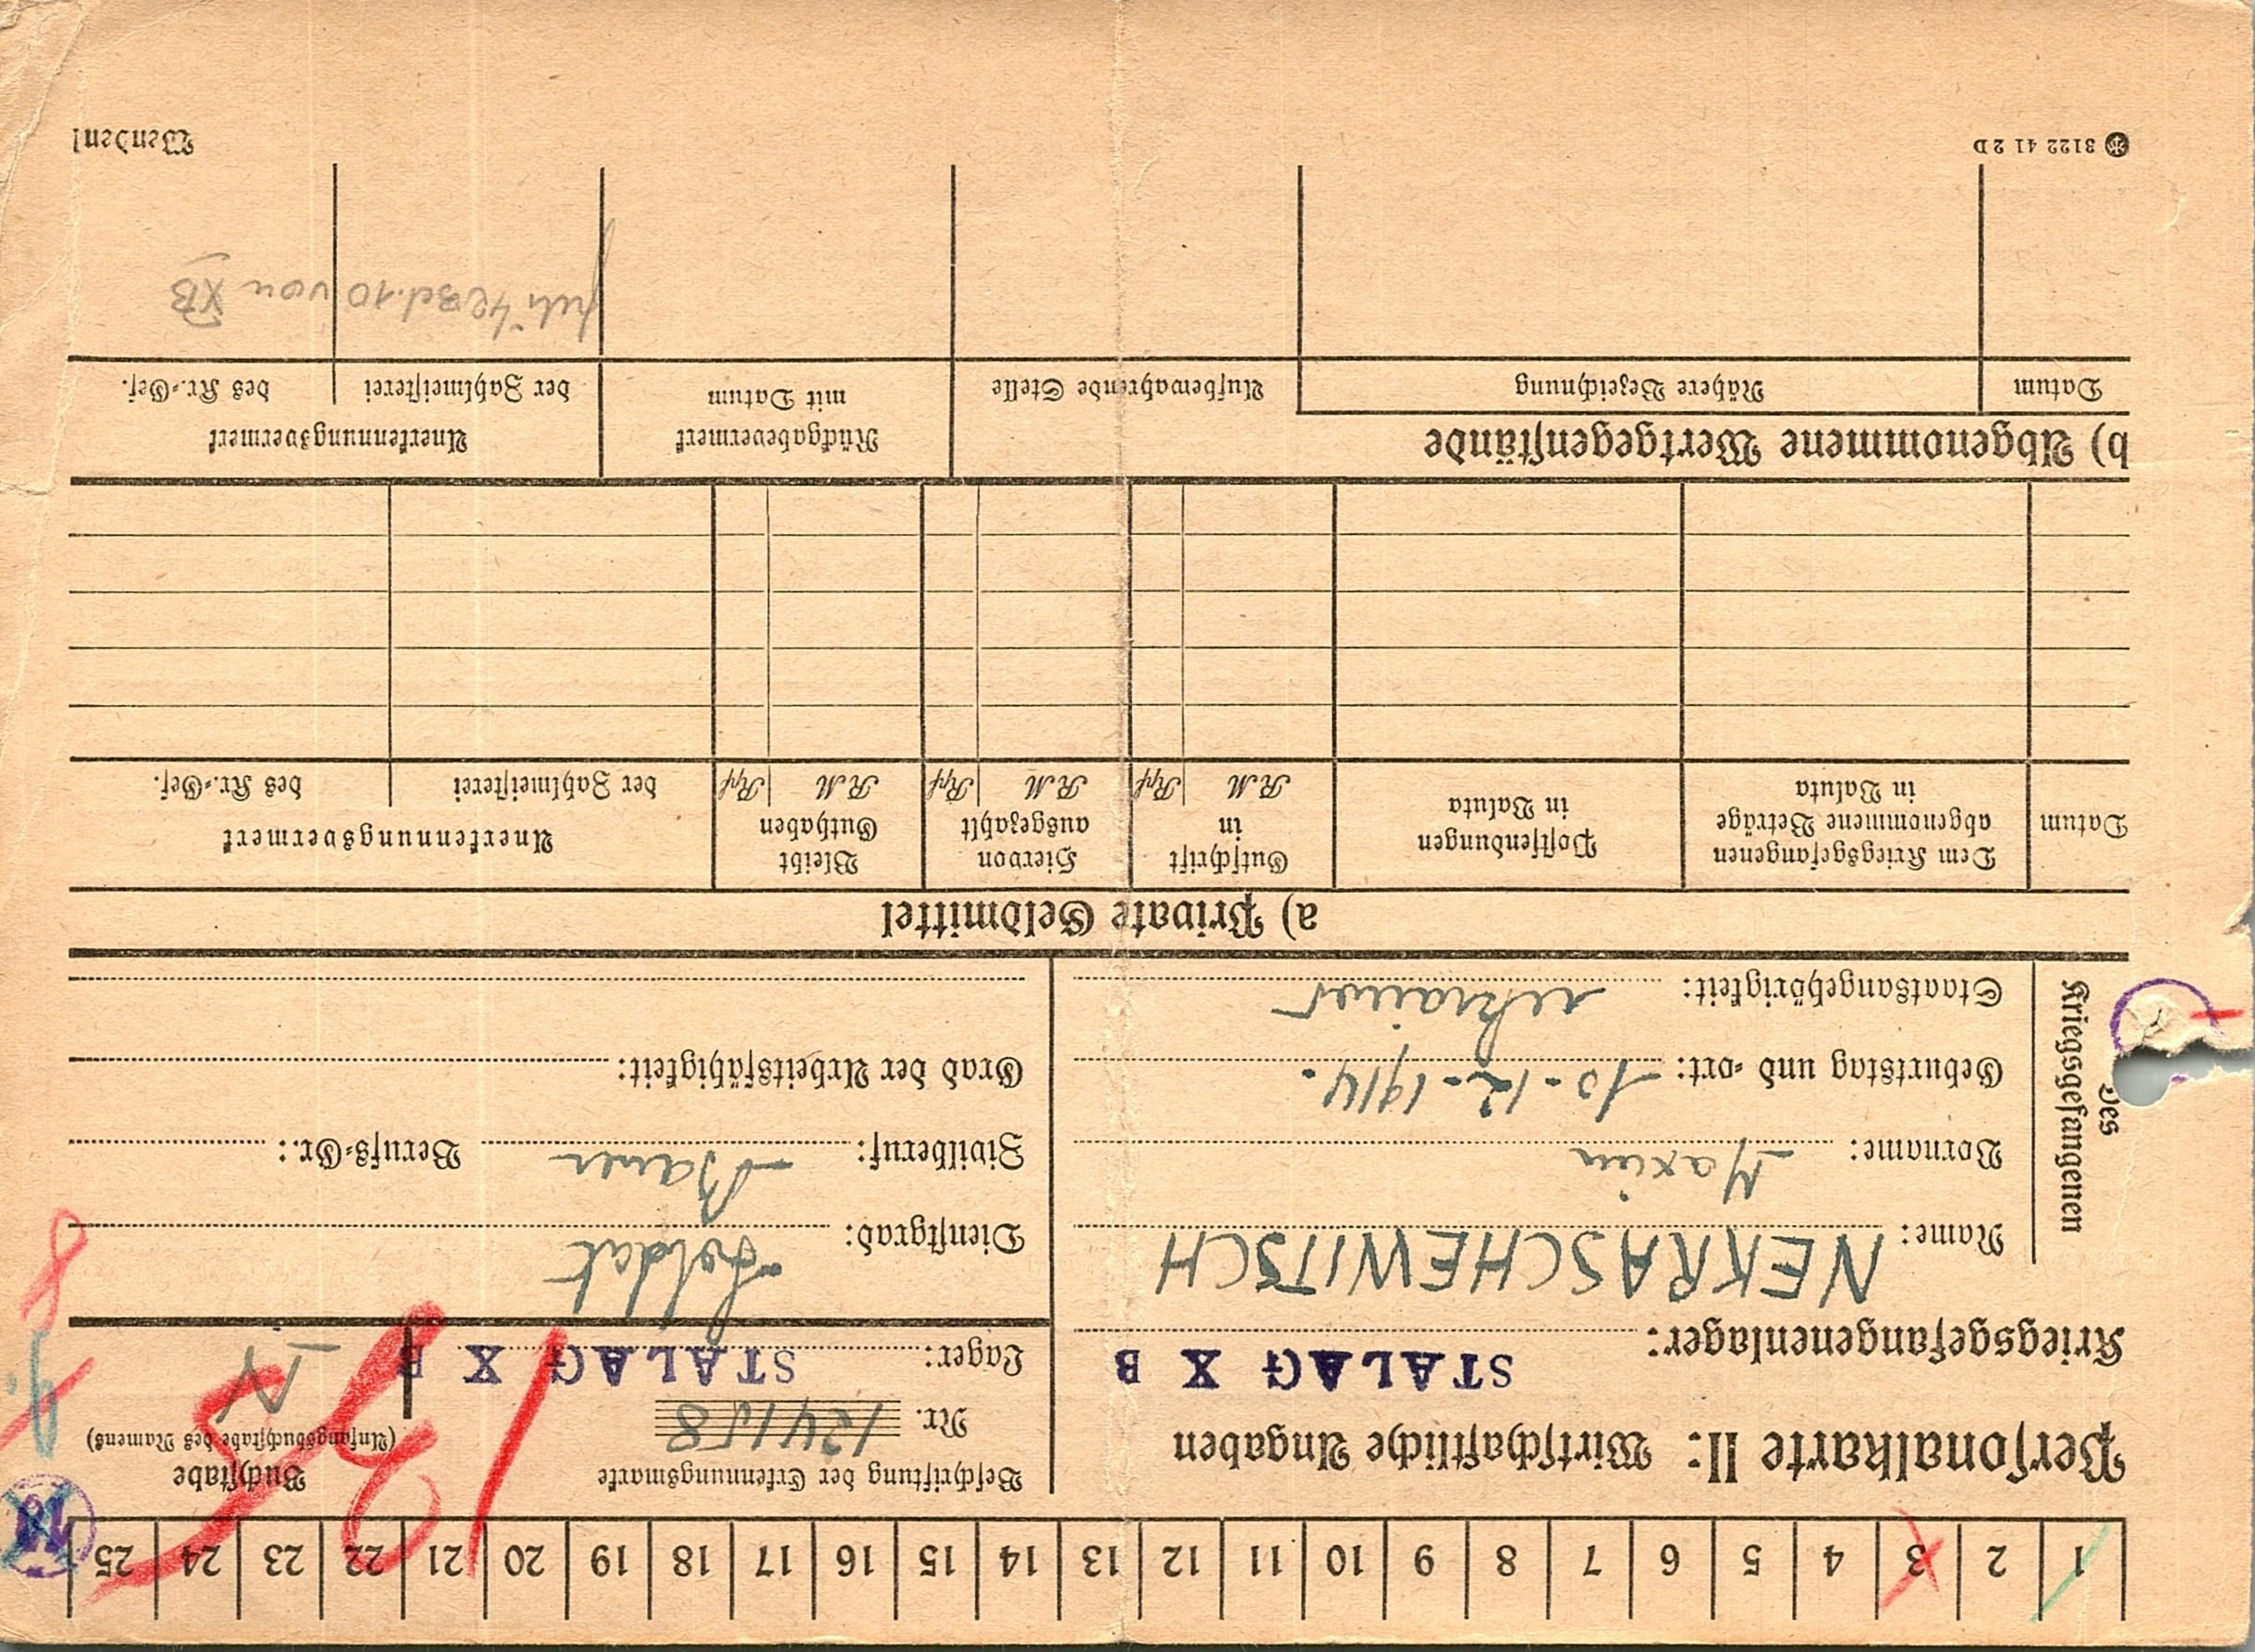 1 2 3 4 5 6 7 8 9 10 11 12 13 14 15 16 17 18 19 20 21 22 23 24 25
18
Personalkarte II: Wirtschaftliche Angaben
Kriegsgefangenenlager: STALAG X B
Beschriftung der Erkennungsmarke
Nr. 124158
Lager: STALAG X B
Buchstabe
(Anfangsbuchstabe des Namens)
N
Des
Kriegsgefangenen
Name: NEKRASCHEWITSCH
Vorname: Maxim
Geburtstag und -ort: 10-12-1914.
Staatsangehörigkeit:
Dienstgrad: Soldat
Zivilberuf: Bauer Berufs-Gr.:
Grad der Arbeitsfähigkeit:
a) Private Geldmittel
Datum
Dem Kriegsgefangenen
abgenommene Beträge
in Valuta
Postsendungen
in Valuta
Gutschrift
in
RM Rpf
Hiervon
ausgezahlt
RM Rpf
Bleibt
Guthaben
RM Rpf
Anerkennungsvermerk
der Zahlmeisterei
des Kr.-Gef.
b) Abgenommene Wertgegenstände
Datum
Nähere Bezeichnung
Aufbewahrende Stelle
Rückgabevermerk
mit Datum
Anerkennungsvermerk
der Zahlmeisterei
des Kr.-Gef.
10 von XB
3122 41 2D
Wenden!